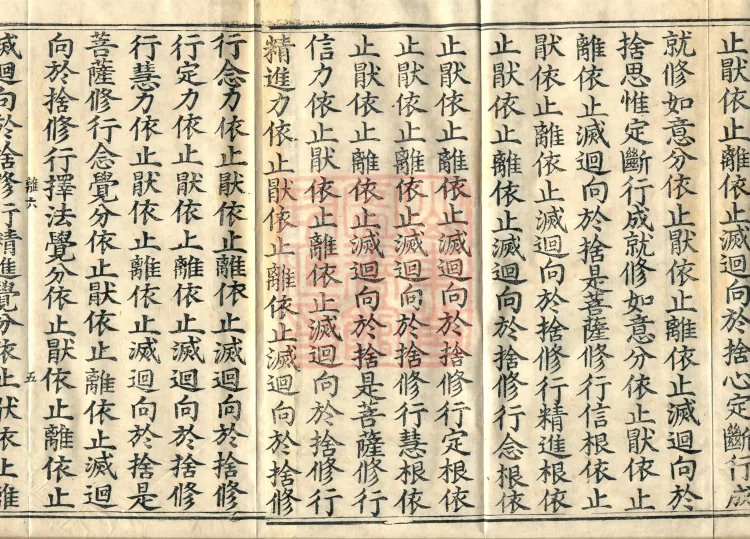 止猒依止離依止滅迴向於捨心定斷行成
就修如意分依止猒依止離依止滅迴向於
捨思惟定斷行成就修如意分依止猒依止
離依止滅迴向於捨是菩薩修行信根依止
猒依止離依止滅迴向於捨修行精進根依
止猒依止離依止滅迴向於捨修行念根依
止猒依止離依止滅迴向於捨修行定根依
止猒依止離依止滅迴向於捨修行慧根依
止猒依止離依止滅迴向於捨是菩薩修行
信力依止猒依止離依止滅迴向於捨修行
精進力依止猒依止離依止滅迴向於捨修
行念力依止猒依止離依止滅迴向於捨修
行定力依止猒依止離依止滅迴向於捨修
行慧力依止猒依止離依止滅迴向於捨是
菩薩修行念覺分依止猒依止離依止滅迴
向於捨修行擇法覺分依止猒依止離依止
離六 五
滅迴向於捨修行精進覺分依止猒依止離